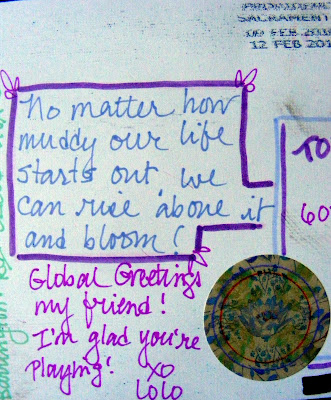 SACRAMENT
09 FEB 201
12 FEB 201
No matter how
muddy our life
starts out we
can rise above it
and bloom!
TO
60
Global Greetings
my friend!
I'm glad you're
Playing!
XO
LOLO